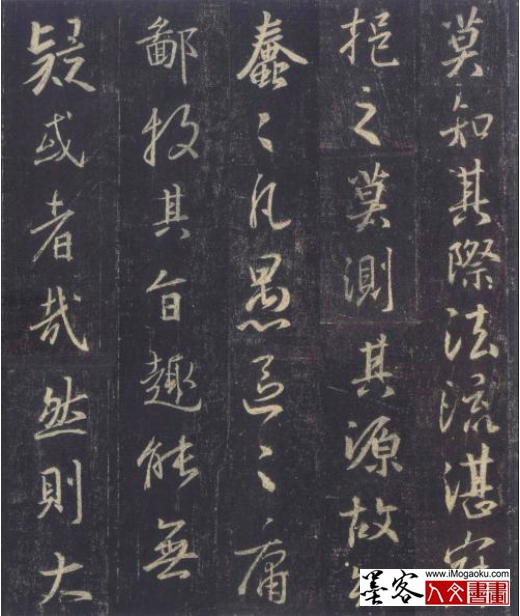 莫知其際法流湛寂
挹之莫測其源故
蠢〻凡愚區〻庸
鄙投其旨趣能無
疑或者哉然則大
墨客 www.iMogaoku.com
人文書畫